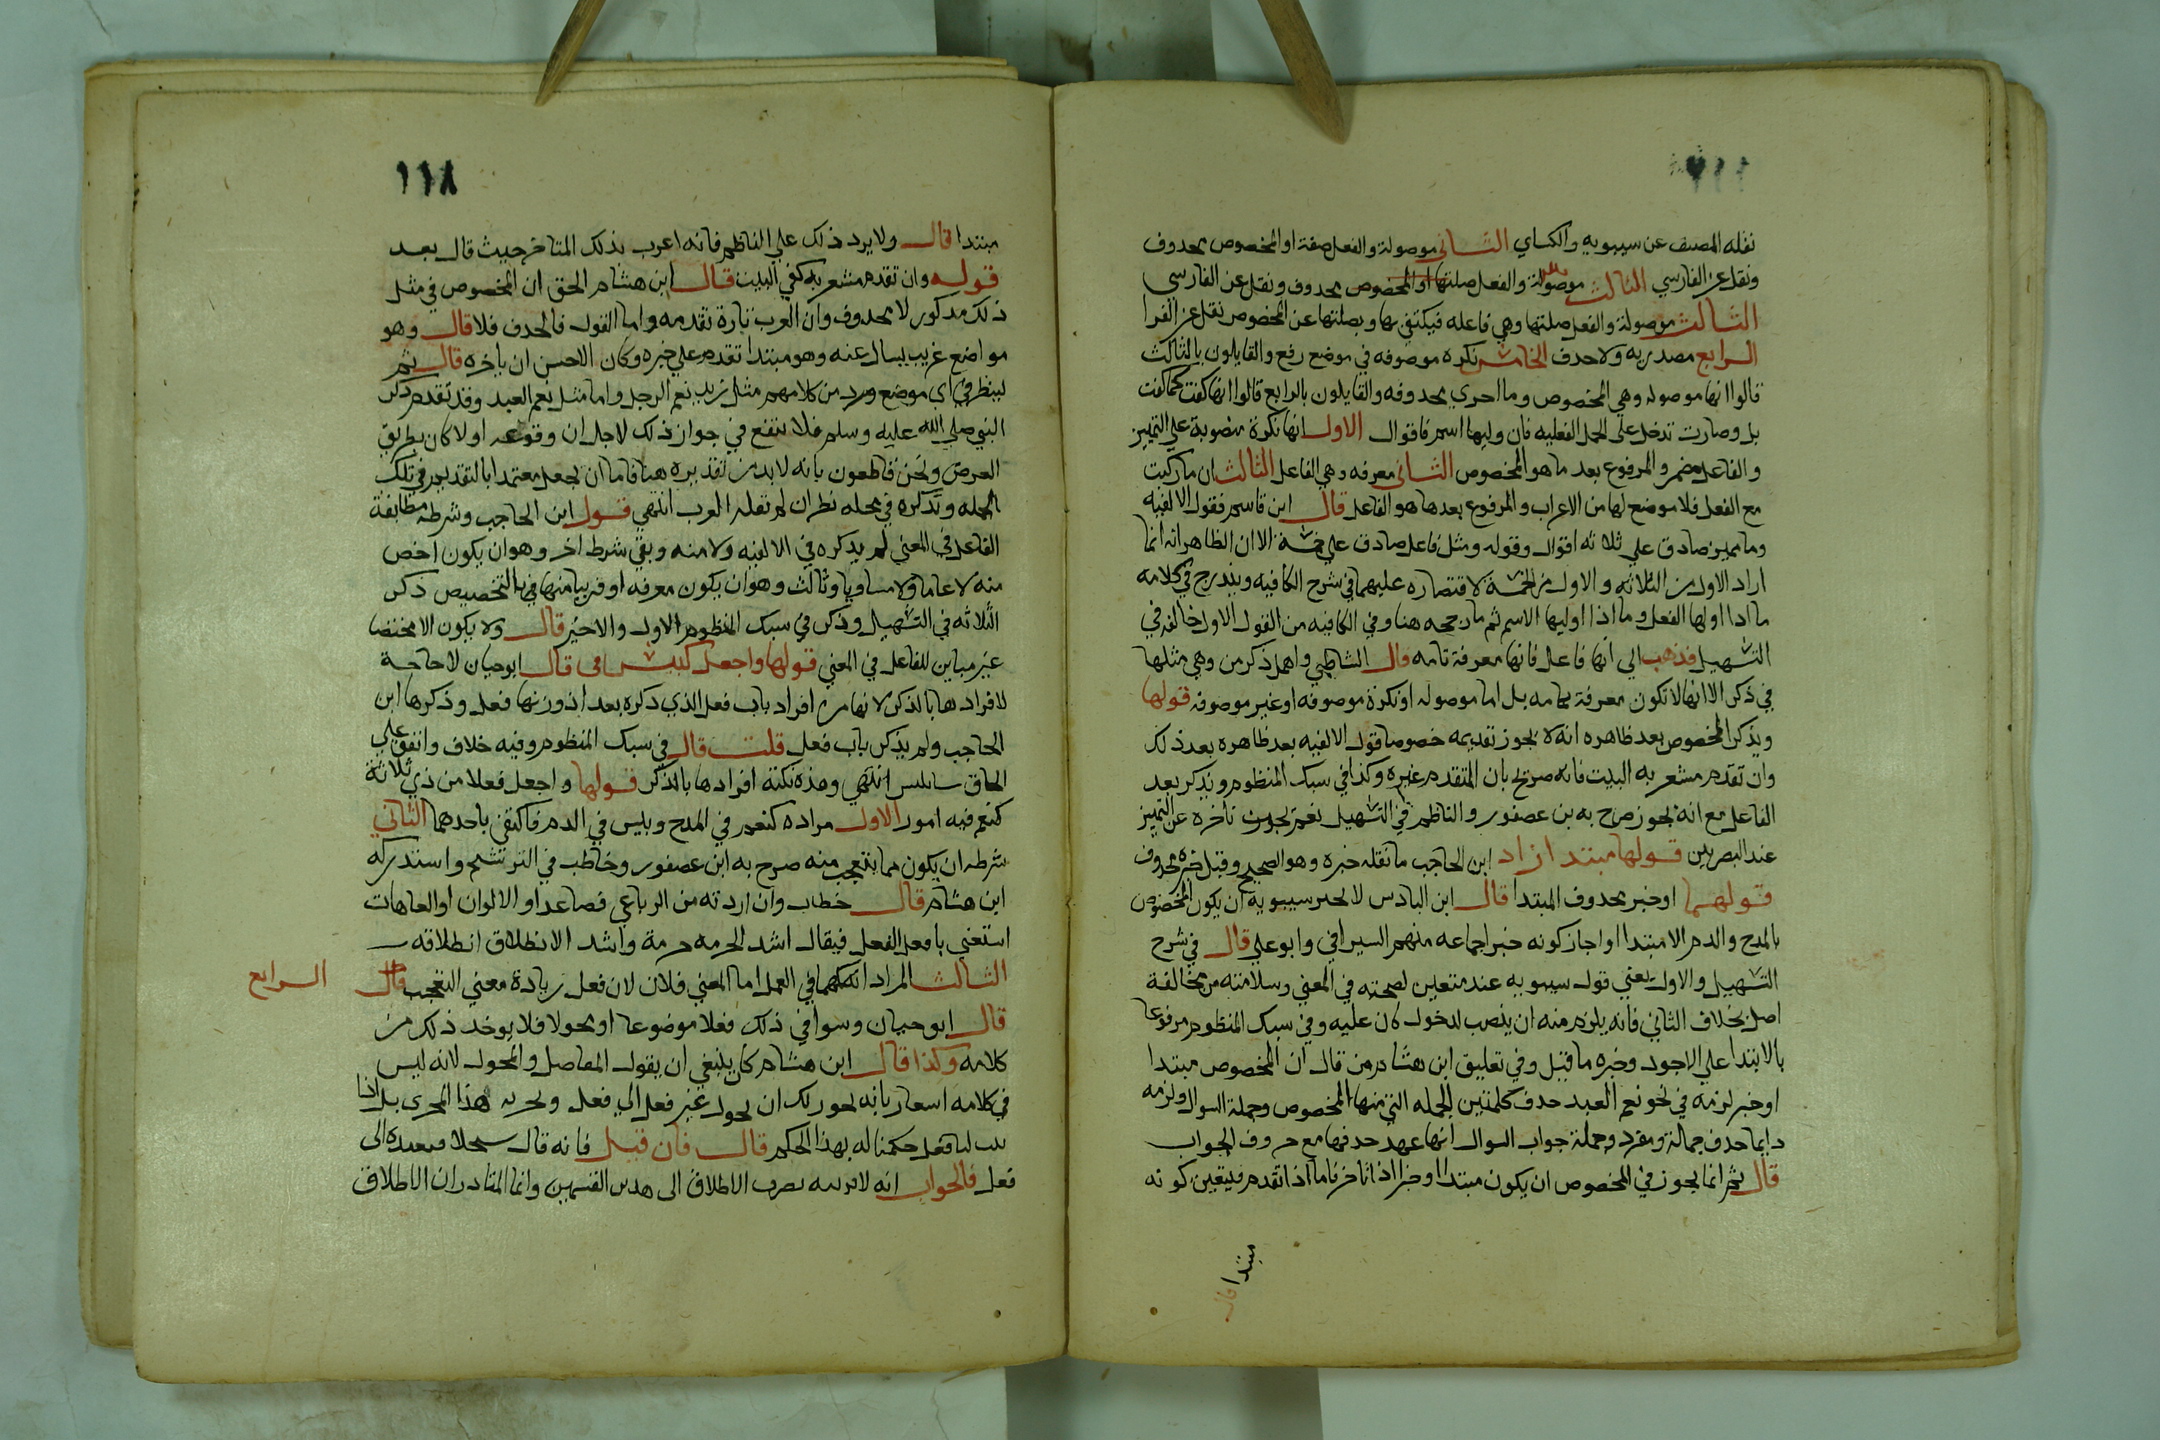 نقله المصنف عن سيبويه والكساي الثاني موصولة والفعل صفة او المخصوص محذوف
ونقل عن الفارسي الثالث موصولة والفعل صلتها او المخصوص محذوف ونقل عن الفارسي
الثالث موصولة والفعل صلتها وهي فاعله فيكتفي بها وبصلتها عن المخصوص نقل عن الفرا
الرابع مصدريه ولا حدف الخامس نكره موصوفه في موضع رفع والقايلون بالثالث
قالوا انها موصوله وهي المخصوص وما اخري محذوفه والقايلون بالرابع قالوا انها كفت كما كفت
بل وصارت تدخل على الجمل الفعليه فان وليها اسم فاقوال الاول انها نكرة منصوبة علي التمييز
والفاعل مضمر والمرفوع بعد ما هو المخصوص الثاني معرفه وهي الفاعل الثالث ان ما ركبت
مع الفعل فلا موضع لها من الاعراب والمرفوع بعدها هو الفاعل قال ابن قاسم فقول الالفيه
وما مميز صادق علي ثلاثه اقوال وقوله ومثل فاعل صادق علي خمسة الا ان الظاهر انه انما
اراد الاول من الثلاثه والاول من الخمسة لاقتصاره عليهما في شرح الكافيه ويندرج في كلامه
ما اذا اولها الفعل وما اذا اوليها الاسم ثم ما رجحه هنا وفي الكافيه من القول الاول خالفه في
التسهيل فذهب الي انها فاعل فانها معرفة تامه قال الشاطبي واهمل ذكر من وهي مثلها
في ذكر الا انها لا تكون معرفة تامه بل اما موصوله او نكرة موصوفه او غير موصوفه قولها
ويذكر المخصوص بعد ظاهره انه لا يجوز تقديمه خصوصا قول الالفيه بعد ظاهره بعد ذلك
وان تقدم مشعر به البيت فانه صريح بان المتقدم غيره وكذا في سبك المنظوم ويذكر بعد
الفاعل مع انه يجوز صرح به بن عصفور والناظم في التسهيل نعم يجوز تاخره عن التمييز
عند البصريين قولها مبتدا زاد ابن الحاجب ما نقله خبره وهو الصحيح وقيل خبره محذوف
قولهما او خبر محذوف المبتدا قال ابن الباذس لا يجيز سيبويه ان يكون المخصوص
بالمدح والذم الا مبتدا واجاز كونه خبرا جماعه منهم السيرافي وابو علي قال في شرح
التسهيل والاول يعني قول سيبويه عند متعين لصحته في المعني وسلامته من مخالفة
اصل بخلاف الثاني فانه يلزم منه ان ينصب لدخول كان عليه وفي سبك المنظوم مرفوعا
بالابتدا علي الاجود وخبره ما قبل وفي تعليق ابن هشام من قال ان المخصوص مبتدا
او خبر لزمه في نحو نعم العبد حدف كلمتين الجمله التي منها المخصوص وجملة السوال ولزمه
دايما حدف جمالة ومفرد وجملة جواب السوال انها عهد حدفها مع حروف الجواب
قال ثم انما يجوز في المخصوص ان يكون مبتدا او خبرا اذا تاخر فاما اذا تقدم فيتعين كونه
مبتدا قال
١١٨
مبتدا قال ولا يرد ذلك علي الناظم فانه اعرب بذلك المتاخر حيث قال بعد
قوله وان تقدم مشعر به كفي البيت قال ابن هشام الحق ان المخصوص في مثل
ذلك مذكور لا محذوف وان العرب تارة تقدمه واما القول فالحدف فلا قال وهو
مواضع غريب يسال عنه وهو مبتدا تقدم علي خبره وكان الاحسن ان ياخره قال ثم
لينظر في اي موضع ورد من كلامهم مثل زيد نعم الرجل واما مثل نعم العبد وقد تقدم ذكر
النبي صلي الله عليه وسلم فلا ينفع في جواز ذلك لاجل ان وقوعه اولا كان بطريق
العرض ونحن قاطعون بانه لا بد من تقديره هنا فاما ان يجعل معتمدا بالتقديم في تلك
الجمله وتذكره في محله نظر ان لم تقله العرب انتهي قول ابن الحاجب وشرطه مطابقة
الفاعل في المعني لم يذكره في الالفيه ولا منه وبقي شرط اخر وهو ان يكون اخص
منه لا عاما ولا مساويا وثالث وهو ان يكون معرفه او قريبا منها في بالتخصيص ذكر
الثلاثه في التسهيل وذكر في سبك المنظوم الاول والاخير قال ولا يكون الا مختصا
غير مباين للفاعل في المعني قولها واجعل كبئس في قال ابو حيان لا حاجة
لافرادها بالذكر لانها من افراد باب فعل الذي ذكره بعد اذ وزنها فعل وذكرها ابن
الحاجب ولم يذكر باب فعل قلت قال في سبك المنظوم وفيه خلاف واتفق علي
الحاق سا ببئس انتهي وهذه نكتة افرادها بالذكر قولها واجعل فعلا من ذي ثلاثة
كنعم فيه امور الاول مراده كنعم في المدح وبئس في الذم فاكتفي باحدهما الثاني
شرطه ان يكون مما يتعجب منه صرح به ابن عصفور وخاطب في الترشيح واستدركه
ابن هشام قال خطاب وان اردته من الرباعي فصاعدا او الالوان او العاهات
استغني بافعل الفعل فيقال اشد الحرمه حرمة واشد الانطلاق انطلاقه
الثالث المراد انه كهما في العمل اما المعني فلان لان فعل زيادة معني التعجب قال الرابع
قال ابو حيان وسوا في ذلك فعلا موضوعا او محولا فلا يوخد ذلك من
كلامه وكذا قال ابن هشام كان ينبغي ان يقول المفاصل والمحول لانه ليس
في كلامه اسعار بانه يجوز لك ان يحول غير فعل الي فعل وتجريه هذا المجري بل اذا
لنا فعل حكمنا له بهذا الحكم قال فان قيل فانه قال سجلا الى
فعل فالجواب انه لا الاطلاق الى القسمين وانما المتبادر ان الاطلاق